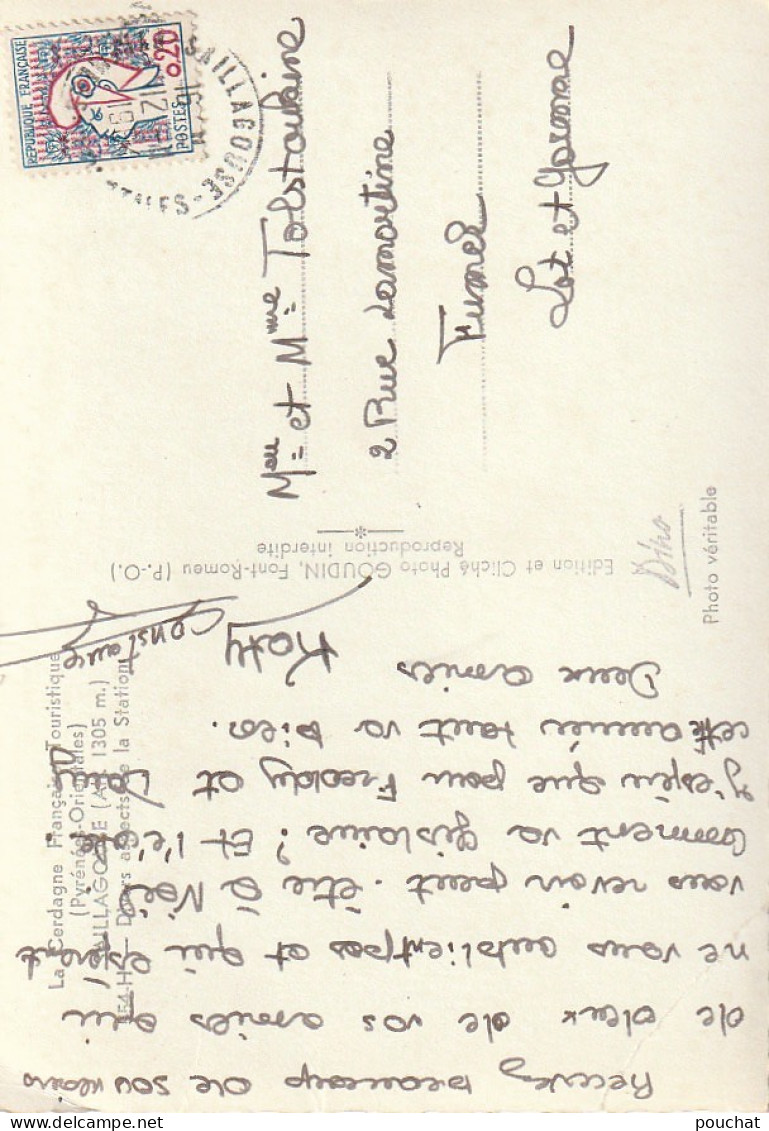 REPUBLIQUE FRANÇAISE
0,20
POSTES
SAILLAGOUSE
La Cerdagne Française Touristique
(Pyrénées-Orientales)
SAILLAGOUSE (Alt. 1305 m.)
Divers aspects de la Station
Recevez beaucoup de souvenirs
de deux de vos amies qui
ne vous oublient pas et qui espèrent
vous revoir peut-être à Noël
Comment va Gislaine? Et l'été
J'espère que pour Freddy et
cette année tout va bien.
Deux amies
Katy
Constance
Edition et Cliché Photo GOUDIN, Font-Romeu (P.-O.)
Reproduction interdite
Photo véritable
et Mme Tolstoulaine
2 Rue Lamartine
Fumel
Lot et Garonne
pouchat